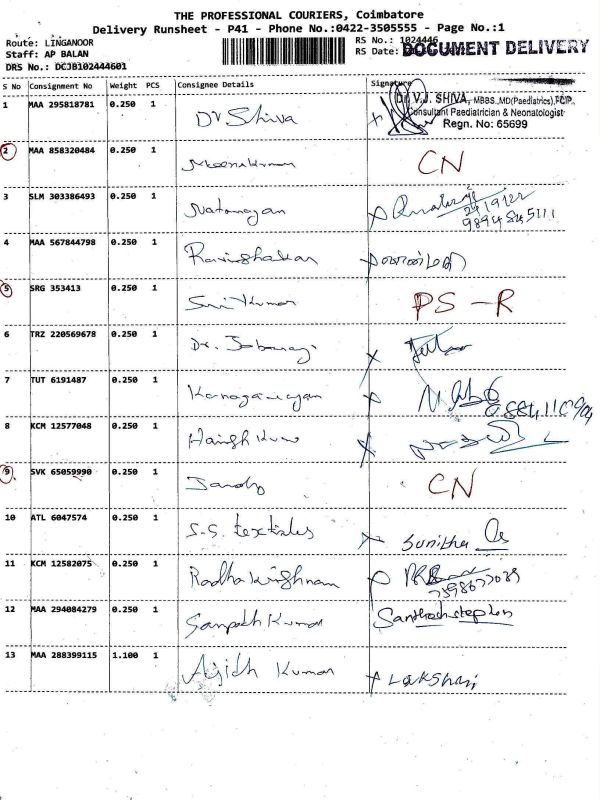 THE PROFESSIONAL COURIERS, Coimbatore
Delivery Runsheet - P41 - Phone No.:0422-3505555 - Page No.:1
Route: LINGANOOR RS No.: 1024446
Staff: AP BALAN RS Date: DOCUMENT DELIVERY
DRS No.: DCJB102444601
S No Consignment No Weight PCS Consignee Details Signature
1 MAA 295818781 0.250 1 Dr Shiva
Dr. V.J. SHIVA, MBBS.,MD(Paediatrics),FCIP.,
Consultant Paediatrician & Neonatologist
Regn. No: 65699
2 MAA 858320484 0.250 1 CN
3 SLM 303386493 0.250 1 Natarajan
4 MAA 567844798 0.250 1
5 SRG 353413 0.250 1 Sri Kumar PS - R
6 TRZ 220569678 0.250 1 Dr.
7 TUT 6191487 0.250 1
8 KCM 12577048 0.250 1
9 SVK 65059990 0.250 1 CN
10 ATL 6047574 0.250 1 S.S. textiles Sunitha
11 KCM 12582075 0.250 1 Radhakrishnan
12 MAA 294084279 0.250 1 Sampath Kumar Santhosh stephen
13 MAA 288399115 1.100 1 Ajith Kumar Lakshmi